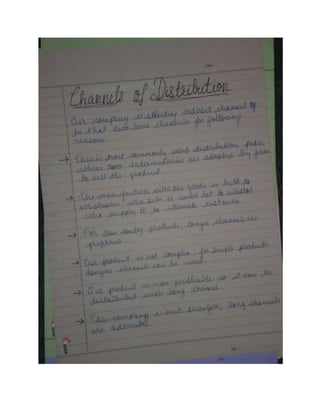 Channels of Distribution
Our company is selecting indirect channel of
in that two level channels for following
reasons
→ This is most commonly used distribution
where two intermediaries are adopted by firms
to sell the product
→ The manufacturer sells the goods in bulk to
wholesaler who sells in small lot to retailer
who supply it to ultimate customer
→ For low costly products, longer channels are
prepared
→ Our product is not complex, for simple products
longer channels can be used
→ Our product is non-perishable so it can be
distributed with long channel
→ Our company is new therefore, long channels
are advisable